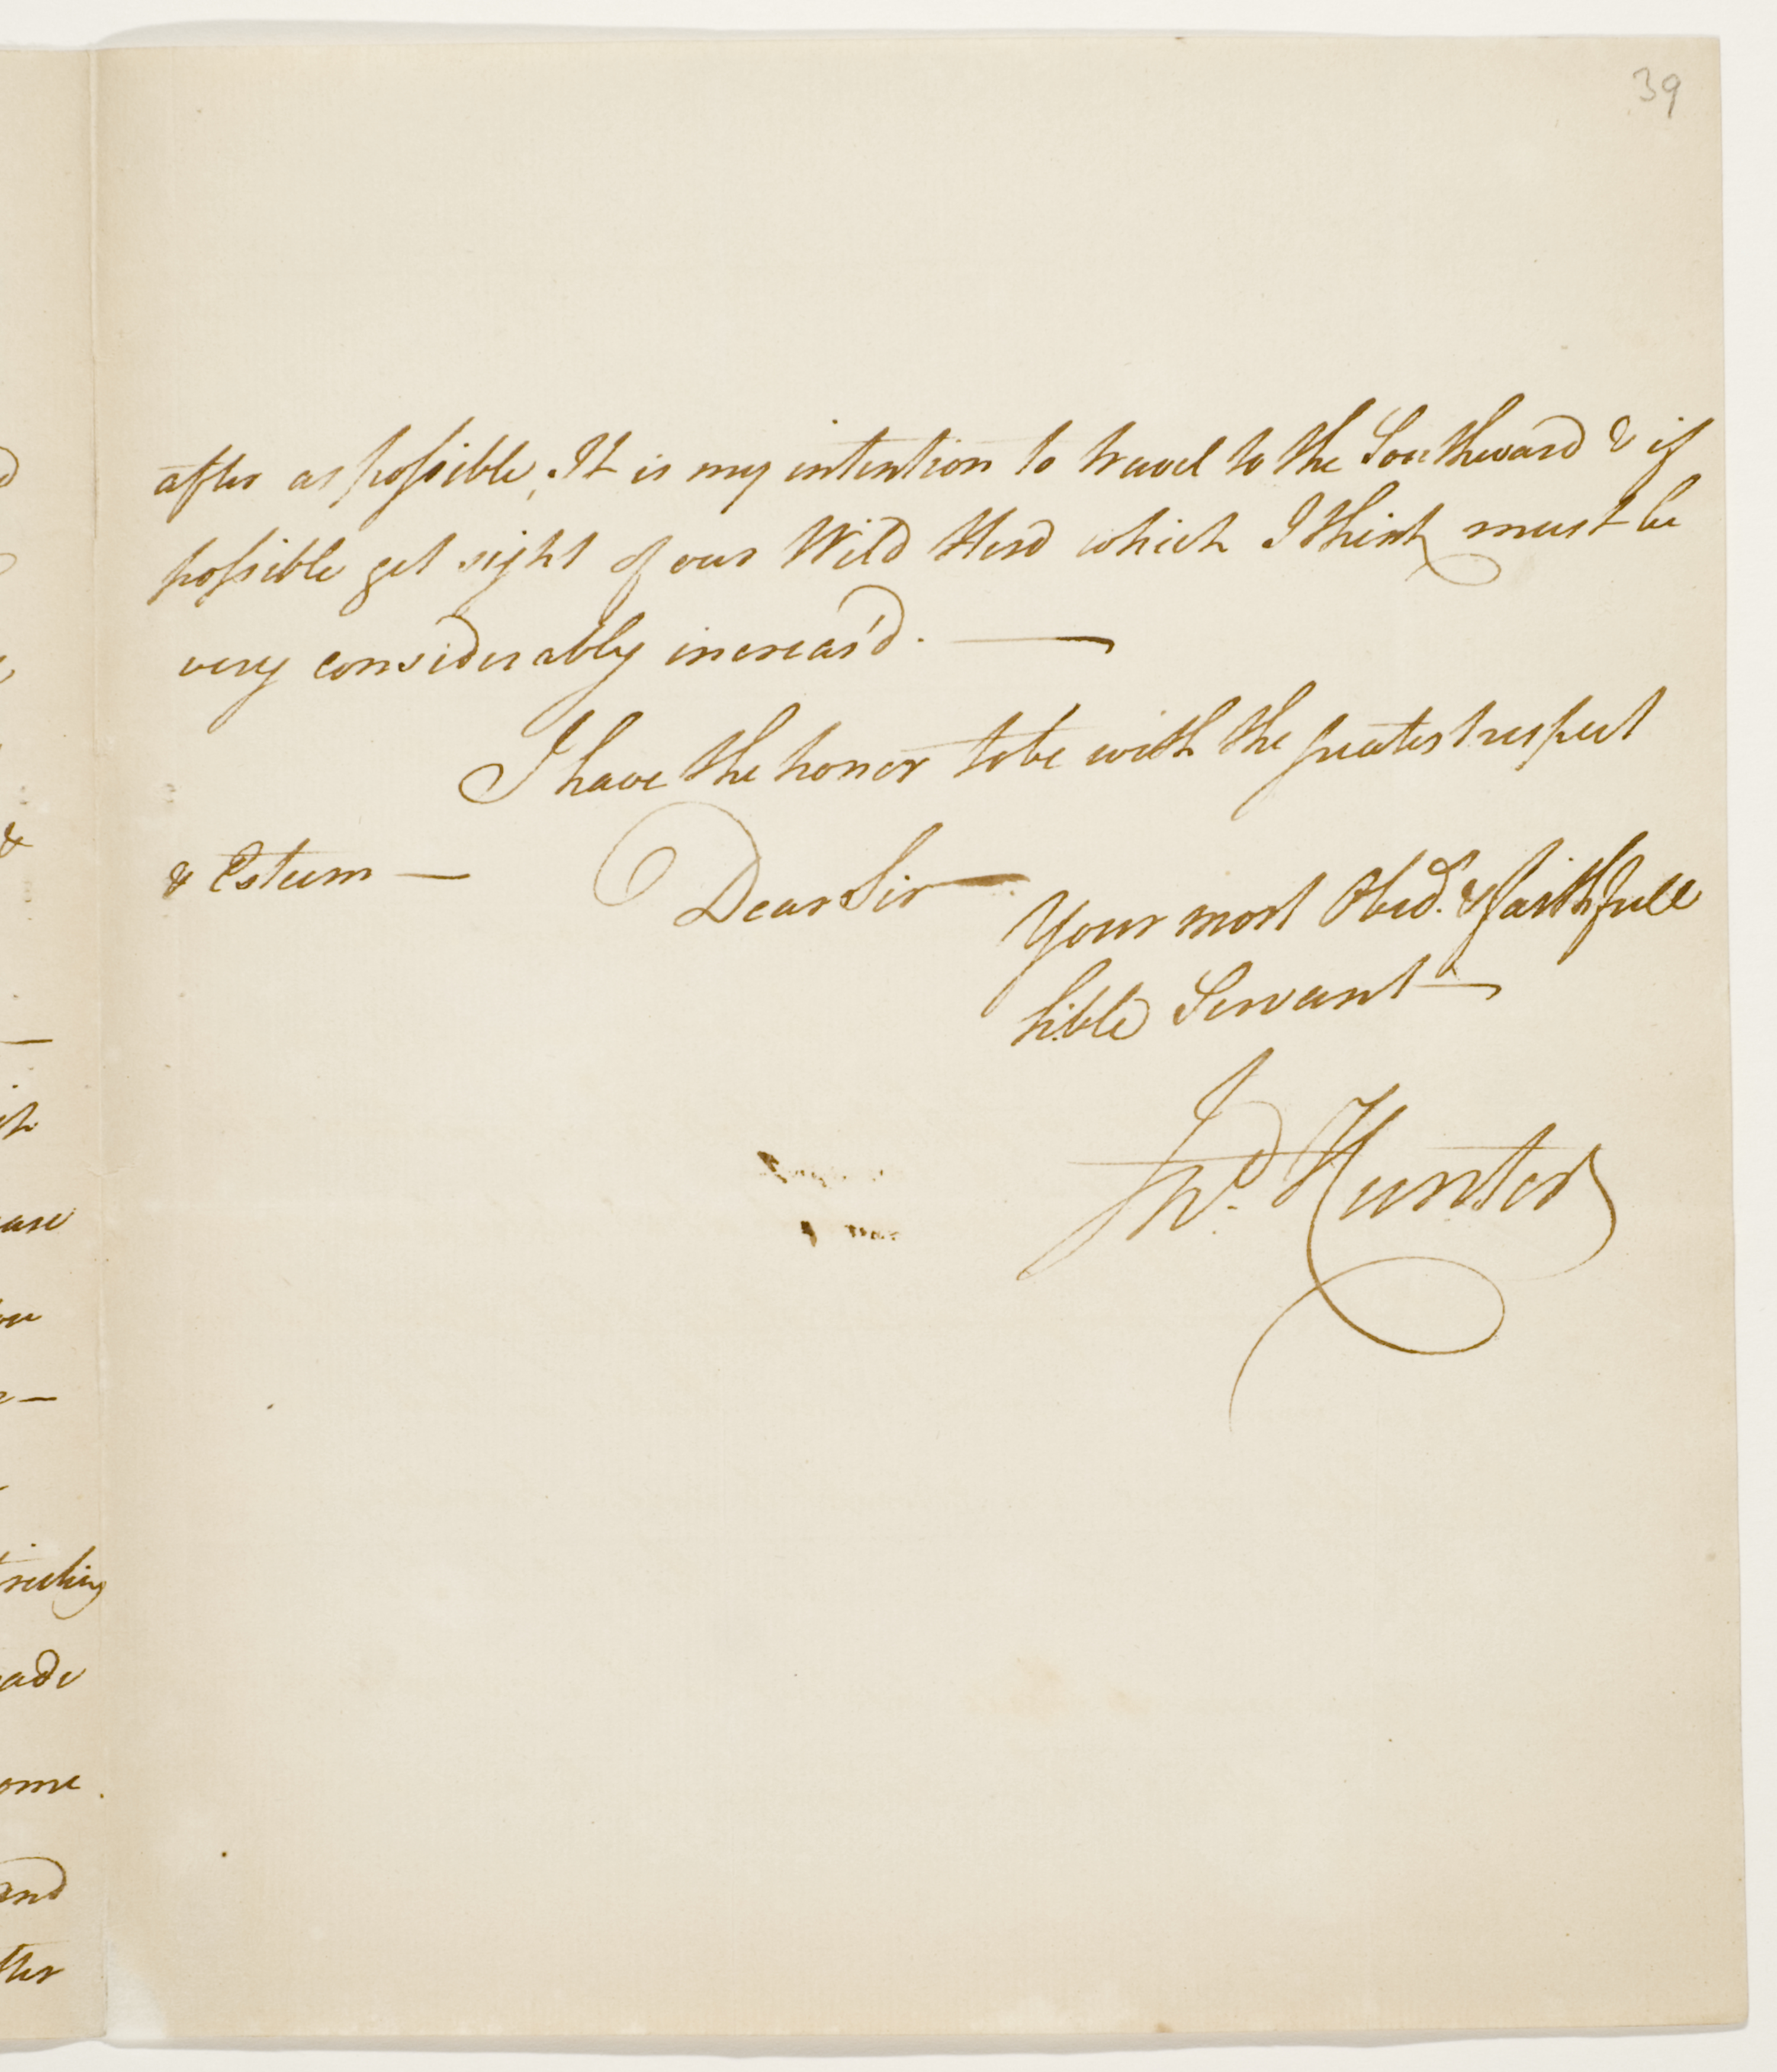 39
after as possible, It is my intention to travel to the Southward & if
possible get sight of our Wild Herd which I think must be
very considerably increas'd. —
I have the honor to be with the greatest respect
& Esteem — Dear Sir —
Your most Obed. & faithfull
hble Servant —
Jno. Hunter